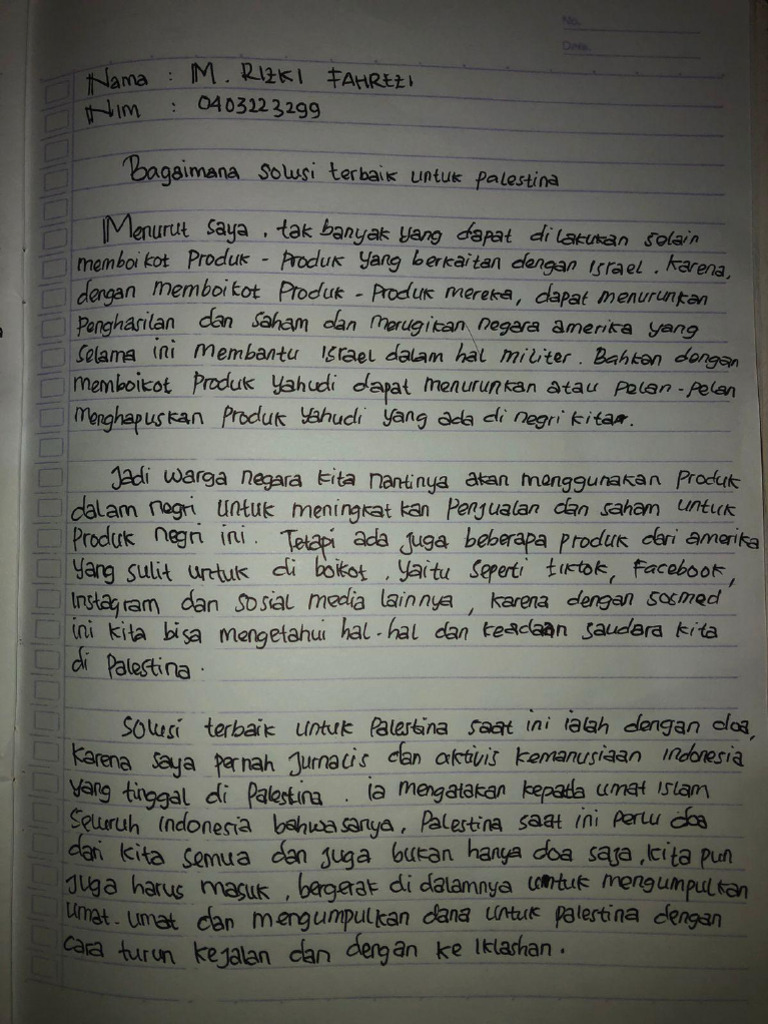 No.
Date
Nama : M. RIZKI FAHREZI
Nim : 0403223299
Bagaimana solusi terbaik untuk palestina
Menurut saya, tak banyak yang dapat di lakukan selain
memboikot Produk - Produk yang berkaitan dengan Israel. Karena,
dengan memboikot Produk - Produk mereka, dapat menurunkan
Penghasilan dan saham dan merugikan negara amerika yang
selama ini membantu Israel dalam hal militer. Bahkan dengan
memboikot Produk Yahudi dapat menurunkan atau pelan-pelan
menghapuskan Produk Yahudi yang ada di negri kita.
Jadi warga negara kita nantinya akan menggunakan Produk
dalam negri untuk meningkat kan Penjualan dan saham untuk
Produk negri ini. Tetapi ada juga beberapa produk dari amerika
Yang sulit untuk di boikot, Yaitu seperti tiktok, Facebook,
Instagram dan sosial media lainnya, karena dengan sosmed
ini kita bisa mengetahui hal-hal dan keadaan saudara kita
di Palestina.
Solusi terbaik untuk Palestina saat ini ialah dengan doa,
Karena saya pernah Jurnalis dan aktivis kemanusiaan Indonesia
yang tinggal di Palestina. ia mengatakan kepada umat Islam
Seluruh Indonesia bahwasanya, Palestina saat ini perlu doa
dari kita semua dan juga bukan hanya doa saja, kita pun
Juga harus masuk, bergerak di dalamnya untuk mengumpulkan
umat-umat dan mengumpulkan dana untuk palestina dengan
cara turun kejalan dan dengan ke Iklashan.